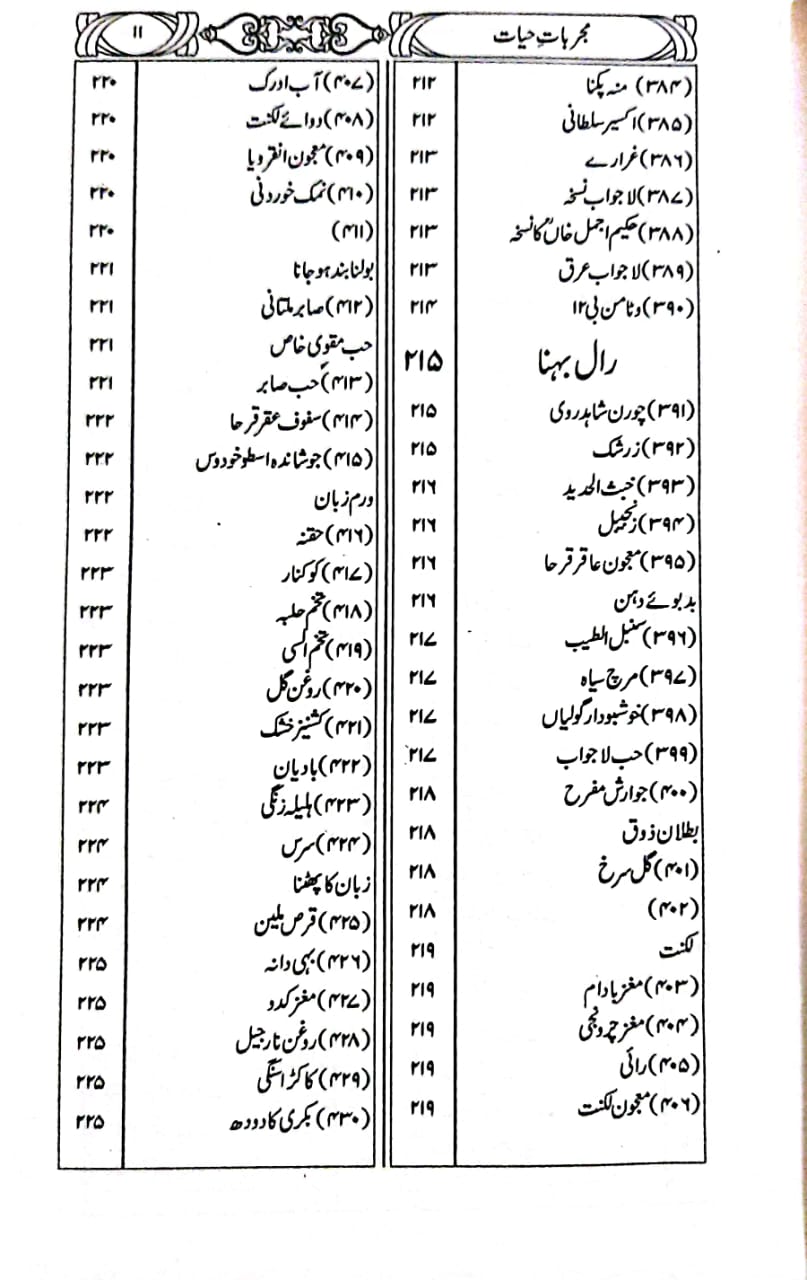 مجرباتِ حیات
۱۱
(۳۸۴) منہ پکنا ۲۱۲
(۳۸۵) اکسیر سلطانی ۲۱۲
(۳۸۶) غرارے ۲۱۳
(۳۸۷) لاجواب نسخہ ۲۱۳
(۳۸۸) حکیم اجمل خاںؒ کا نسخہ ۲۱۳
(۳۸۹) لاجواب عرق ۲۱۳
(۳۹۰) وٹامن بی ۱۲ ۲۱۴
رال بہنا ۲۱۵
(۳۹۱) چورن شاہدروی ۲۱۵
(۳۹۲) زرشک ۲۱۵
(۳۹۳) خبث الحدید ۲۱۶
(۳۹۴) زنجبیل ۲۱۶
(۳۹۵) معجون عاقر قرحا ۲۱۶
بدبوئے دہن ۲۱۶
(۳۹۶) سنبل الطیب ۲۱۷
(۳۹۷) مرچ سیاہ ۲۱۷
(۳۹۸) خوشبودار گولیاں ۲۱۷
(۳۹۹) حب لاجواب ۲۱۷
(۴۰۰) جوارش مفرح ۲۱۸
بطلان ذوق ۲۱۸
(۴۰۱) گل سرخ ۲۱۸
(۴۰۲) ۲۱۸
لکنت ۲۱۹
(۴۰۳) مغز بادام ۲۱۹
(۴۰۴) مغز چرونجی ۲۱۹
(۴۰۵) رائی ۲۱۹
(۴۰۶) معجون لکنت ۲۱۹
(۴۰۷) آب ادرک ۲۲۰
(۴۰۸) دوائے لکنت ۲۲۰
(۴۰۹) معجون انقرویا ۲۲۰
(۴۱۰) نمک خوردنی ۲۲۰
(۴۱۱) ۲۲۰
بولنا بند ہو جانا ۲۲۱
(۴۱۲) صابر ملتانی ۲۲۱
حب مقویِ خاص ۲۲۱
(۴۱۳) حب صابر ۲۲۱
(۴۱۴) سفوف عقرقرحا ۲۲۲
(۴۱۵) جوشاندہ اسطوخودوس ۲۲۲
ورم زبان ۲۲۲
(۴۱۶) حقنہ ۲۲۲
(۴۱۷) کوکنار ۲۲۳
(۴۱۸) تخم حلبہ ۲۲۳
(۴۱۹) تخم السی ۲۲۳
(۴۲۰) روغن گل ۲۲۳
(۴۲۱) کشنیز خشک ۲۲۳
(۴۲۲) بادیان ۲۲۳
(۴۲۳) ہلیلہ زنگی ۲۲۴
(۴۲۴) سرس ۲۲۴
زبان کا پھٹنا ۲۲۴
(۴۲۵) قرص ملین ۲۲۴
(۴۲۶) بہی دانہ ۲۲۵
(۴۲۷) مغز کدو ۲۲۵
(۴۲۸) روغن نارجیل ۲۲۵
(۴۲۹) کاکڑاسنگی ۲۲۵
(۴۳۰) بکری کا دودھ ۲۲۵